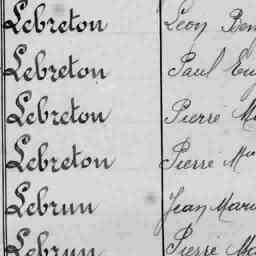 Lebreton Léon Ben
Lebreton Paul Eug
Lebreton Pierre M
Lebreton Pierre Mie
Lebrun Jean Mari
Lebrun Pierre Ma